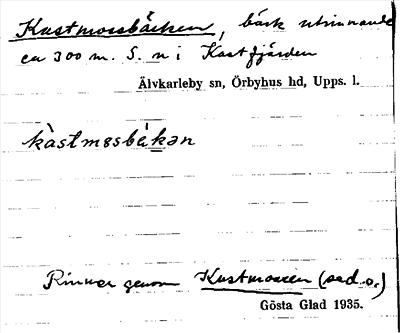 Kastmossbäcken, bäck utrinnande
ca 300 m. S. n i Kastfjärden
Älvkarleby sn, Örbyhus hd, Upps. l.
kàstmɷsbɛ̀kan
Rinner genom Kastmossen (sed. o.)
Gösta Glad 1935.